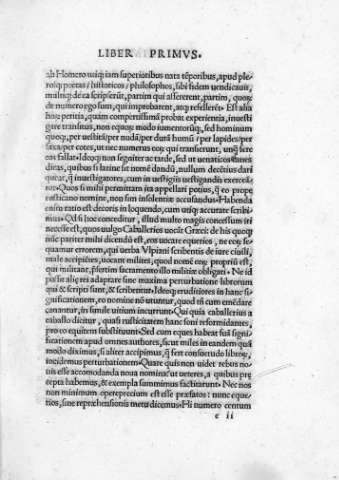 LIBER PRIMVS.
ab Homero usq; iam superioribus nata tēporibus, apud ple-
rosq; poetas/historicos/philosophos, sibi fidem uendicauit,
multiq; de ea scripserūt, partim qui assererent, partim, quoꝝ
de numero ego sum, qui improbarent, atq; refellerēt. Est alia
huic petitia, quam compertissimā probat experientia, inuesti
gare transitus, non equoꝝ modo iumentorūq;, sed hominum
quoq;, per uestitā/per nudā/per durā humū/per lapides/per
saxa/per cotes, ut nec numerus eoꝝ qui transierunt, unq̄ fere
eos fallat. Ideoq; non segniter ac tarde, sed ut uenaticos canes
dicas, quibus si latine sit nomē dandū, nullum decētius dari
queat, q̄ inuestigatores, cum in uestigiis uestigandis exercen
tur. Quos si mihi permittam ita appellari potius, q̄ eo prope
rusticano nomine, non sim insolentiæ accusandus. Habenda
enim ratio est decoris in loquendo, cum utiq; accurate scribi-
mus. Qd si hoc conceditur, illud multo magis concessum iri
necesse est, quos uulgo Caballerios uocāt Græci: de his quoq;
nūc pariter mihi dicendū est, eos uocare equerios, ne eoꝝ se-
quamur errorem, qui uerba Vlpiani scribentis de iure ciuili,
male accipiētes, uocant milites, quod nomē eoꝝ propriū est,
qui militant, p̄sertim sacramento illo militiæ obligati. Ne id
posse aliq; rei adaptare sine maxima perturbatione librorum
qui & scripti sunt, & scribentur. Ideoq; eruditiores in hanc si-
gnificationem, eo nomine nō utuntur, quod tū cum emēdare
conantur, in simile uitium incurrunt. Qui quia caballerius a
caballo dicitur, quasi rusticitatem hanc soni reformidantes,
pro eo equitem substituunt. Sed cum eques habeat suā signi-
ficationem apud omnes authores, sicut miles in eandem quā
modo diximus, si aliter accipimus, q̄ fert consuetudo libroꝝ,
incidemus perturbationem. Quare quis non uidet rebus no-
uis esse accomodanda noua nomina? ut ueteres, a quibus præ
cepta habemus, & exempla summimus factitarunt. Nec nos
non minimum operepreciam est esse præfatos: nunc eque-
rios, sine repræhensionis metu dicemus. Hi numero centum
c ii